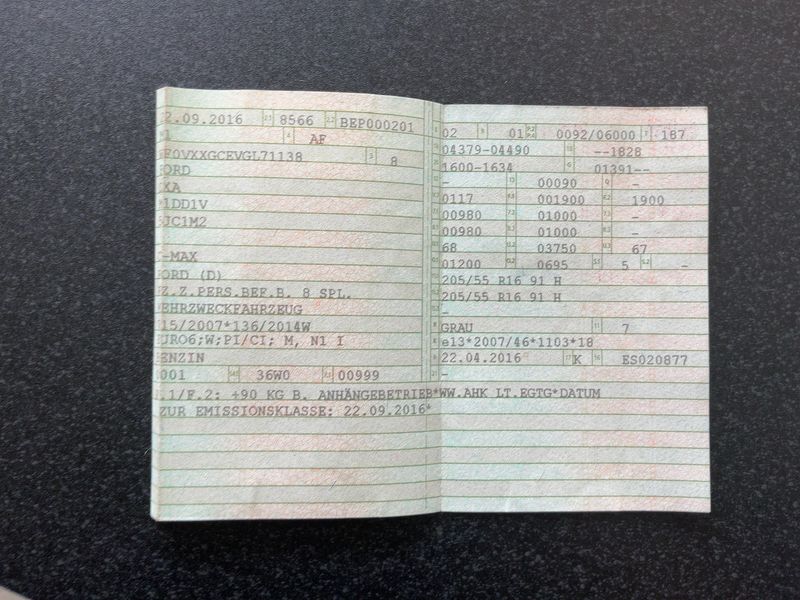 2.09.2016 8566 BEP000201
1 AF
F0VXXGCEVGL71138 8
ORD
XA
1DD1V
JC1M2
-MAX
ORD (D)
Z.Z.PERS.BEF.B. 8 SPL.
EHRZWECKFAHRZEUG
15/2007*136/2014W
URO6;W;PI/CI; M, N1 I
ENZIN
001 36W0 00999
.1/F.2: +90 KG B. ANHÄNGEBETRIEB*WW.AHK LT.EGTG*DATUM
ZUR EMISSIONSKLASSE: 22.09.2016*
02 01 0092/06000 187
04379-04490 --1828
1600-1634 01391--
- 00090 -
0117 001900 1900
00980 01000 -
00980 01000 -
68 03750 67
01200 0695 5 -
205/55 R16 91 H
205/55 R16 91 H
-
GRAU 7
e13*2007/46*1103*18
22.04.2016 K ES020877
-